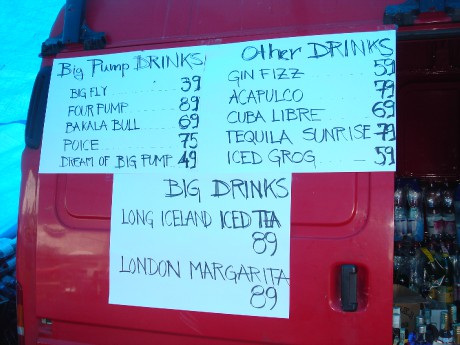 Big Pump DRINKS
BIG FLY 39
FOUR PUMP 89
BAKALA BULL 69
POICE 75
DREAM OF BIG PUMP 49
Other DRINKS
GIN FIZZ 59
ACAPULCO 79
CUBA LIBRE 69
TEQUILA SUNRISE 79
ICED GROG 59
BIG DRINKS
LONG ICELAND ICED TEA
89
LONDON MARGARITA
89